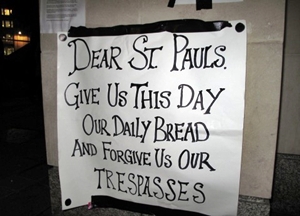 DEAR ST PAULS.
GIVE US THIS DAY
OUR DAILY BREAD
AND FORGIVE US OUR
TRESPASSES